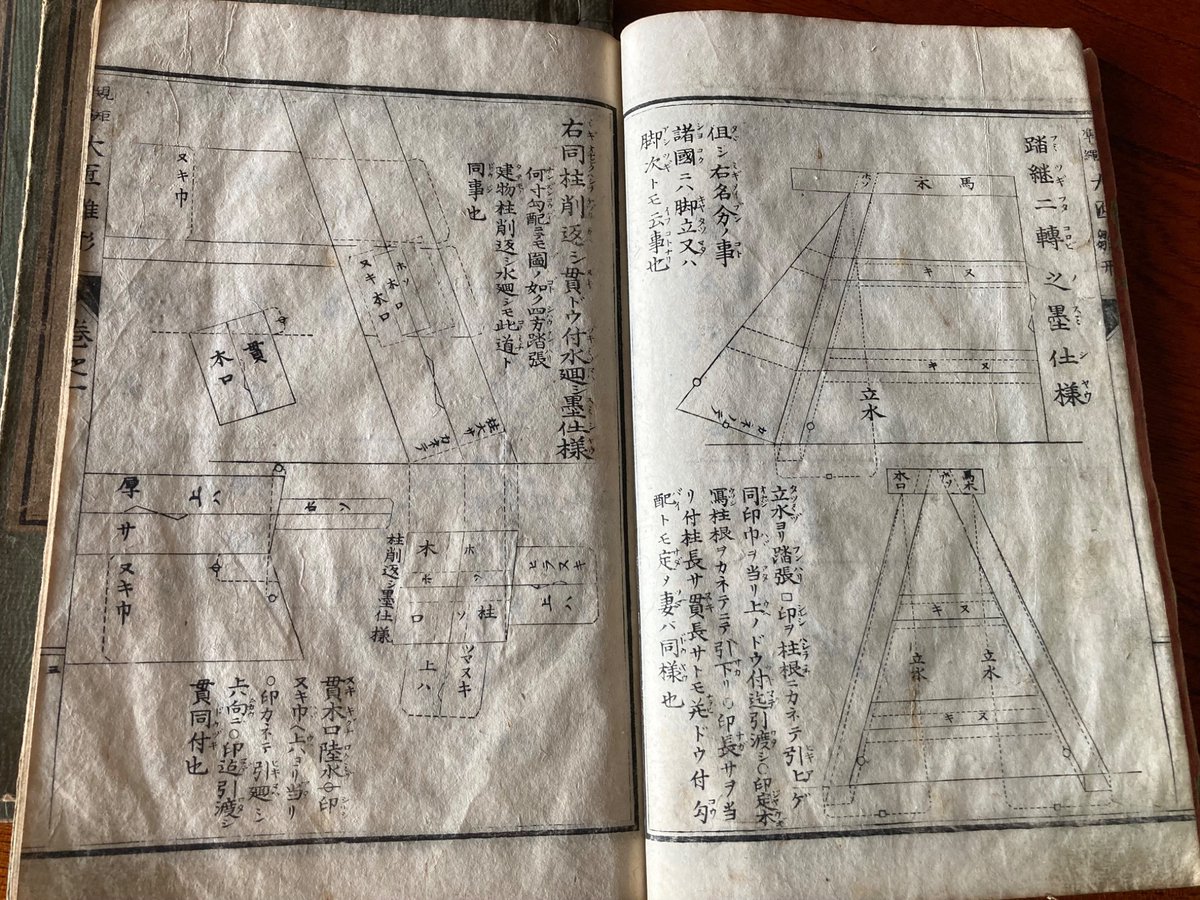 踏継二轉之墨仕様
馬木
ホソ
ヌキ
ヌキ
立水
カネノテ
但シ右名分ノ事
諸國ニハ脚立又ハ
脚次トモ云事也
馬木
木口
ヌキ
立水
立水
ヌキ
立水ヨリ踏張□印ヲ柱根ニカネテ引上ゲ
同印巾ヲ当リ上ノドウ付迄引渡シ〇印定木
寫柱根ヲカネテニテ引下リ〇印長サヲ当
リ付柱長サ貫長サトモ并ドウ付勾
配トモ定ノ妻バ同様也
規矩
大匠雛形
巻之一
三
右同柱削返シ貫ドウ付水廻シ墨仕様
何寸勾配ニテモ圖ノ如ク四方踏張
建物柱削返シ水廻シモ此道ト
同事也
ヌキ巾
ホソ木口
ヌキ木口
貫
木口
柱大キ
カネノテ
厚サ
上ハ
ヌキ巾
ホソ
柱削返シ墨仕様
柱木口
ホソ
ホソ
ヒラヌキ
上ハ
ツマヌキ
上ハ
貫木口陸水印
ヌキ巾ヘ上ハヨリ当リ
〇印カネテ引廻シ
上ハ向ニ〇印迄引渡シ
貫同付也